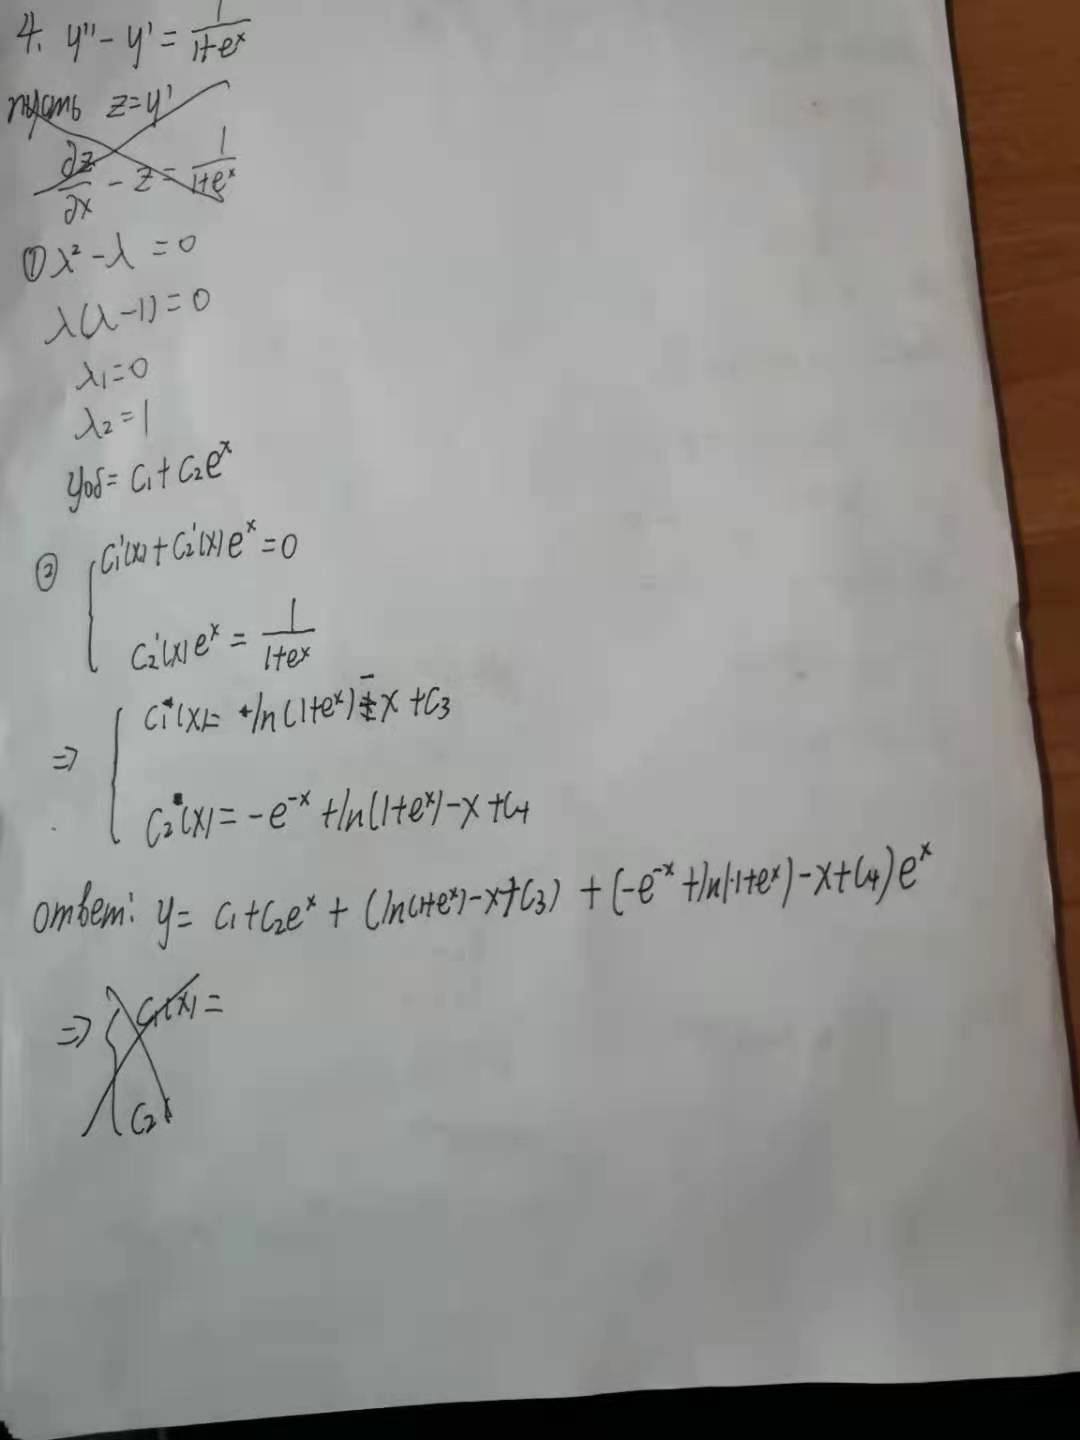 4. y'' - y' = 1/(1+e^x)
пусть z=y'
∂z/∂x - z = 1/(1+e^x)
① λ² - λ = 0
λ(λ-1) = 0
λ₁=0
λ₂=1
yоб = C₁ + C₂e^x
② { C₁'(x) + C₂'(x)e^x = 0
C₂'(x)e^x = 1/(1+e^x)
⇒ { C₁*(x) = ln(1+e^x) - x + C₃
C₂*(x) = -e^-x + ln(1+e^x) - x + C₄
ответ: y = C₁+C₂e^x + (ln(1+e^x)-x+C₃) + (-e^-x + ln(1+e^x) - x + C₄)e^x
⇒ { C₁(x) =
C₂